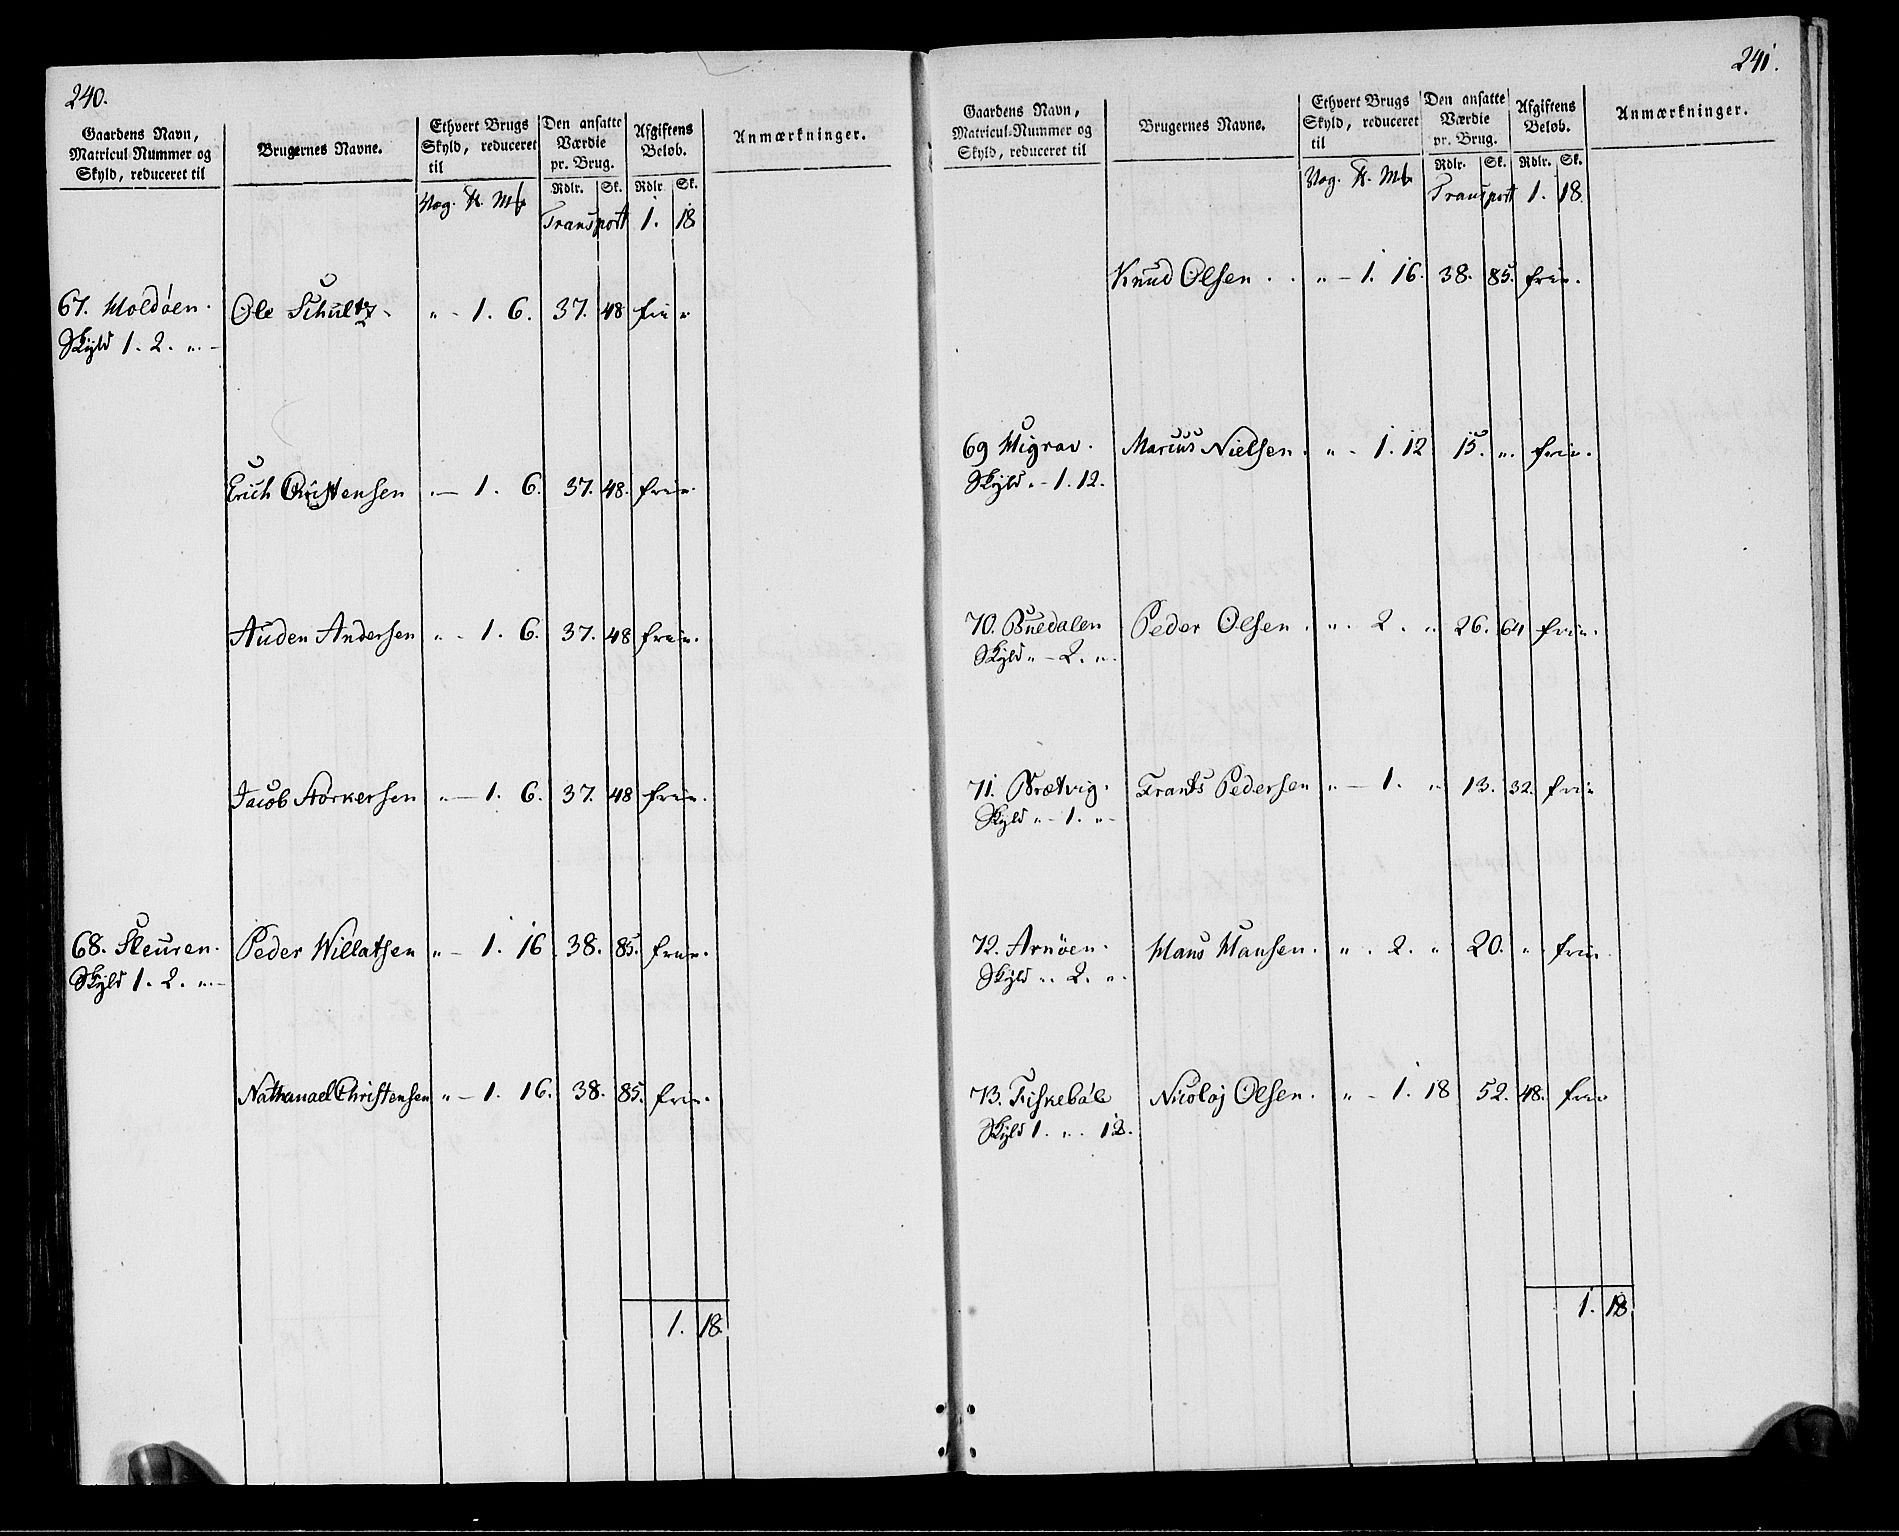 240.
Gaardens Navn, Matricul Nummer og Skyld, reduceret til | Brugernes Navne. | Ethvert Brugs Skyld, reduceret til | Den ansatte Værdie pr. Brug. | Afgiftens Beløb. | Anmærkninger.
Vog. ℔. Mk | Rdlr. | Sk. | Rdlr | Sk.
Transport 1. 18.
67. Holdøen. Ole Schultz. " - 1. 6. 37. 48 frie "
Skyld 1. 2. " -
Erich Christensen " - 1. 6. 37. 48. frie ".
Auden Andersen " - 1. 6. 37. 48 frie ".
Jacob Storkersen " - 1. 6. 37. 48 frie ".
68. Steuren. Peder Willatsen " - 1. 16. 38. 85. frie ".
Skyld 1. 2. " -
Nathanael Christensen " - 1. 16. 38. 85. frie ".
1. 18.
241.
Gaardens Navn, Matricul-Nummer og Skyld, reduceret til | Brugernes Navne. | Ethvert Brugs Skyld, reduceret til | Den ansatte Værdie pr. Brug. | Afgiftens Beløb. | Anmærkninger.
Vog. ℔. Mk | Rdlr. | Sk. | Rdlr. | Sk.
Transport 1. 18.
Knud Olsen . . " - 1. 16. 38. 85. frie ".
69 Higrav. Marcus Nielsen. " - 1. 12 15. ". frie ".
Skyld " - 1. 12.
70. Buedalen Peder Olsen. " . 2. " 26. 64 frie ".
Skyld " - 2. ".
71. Brætvig. Frants Pedersen " - 1. " 13. 32. frie
Skyld " - 1. " -
72. Arnøen. Hans Hansen. " . 2. " 20. " frie
Skyld " . 2. ".
73. Fiskebøle Nicolaj Olsen. " - 1. 18 52. 48. frie
Skyld 1. ". 18.
1. 18.